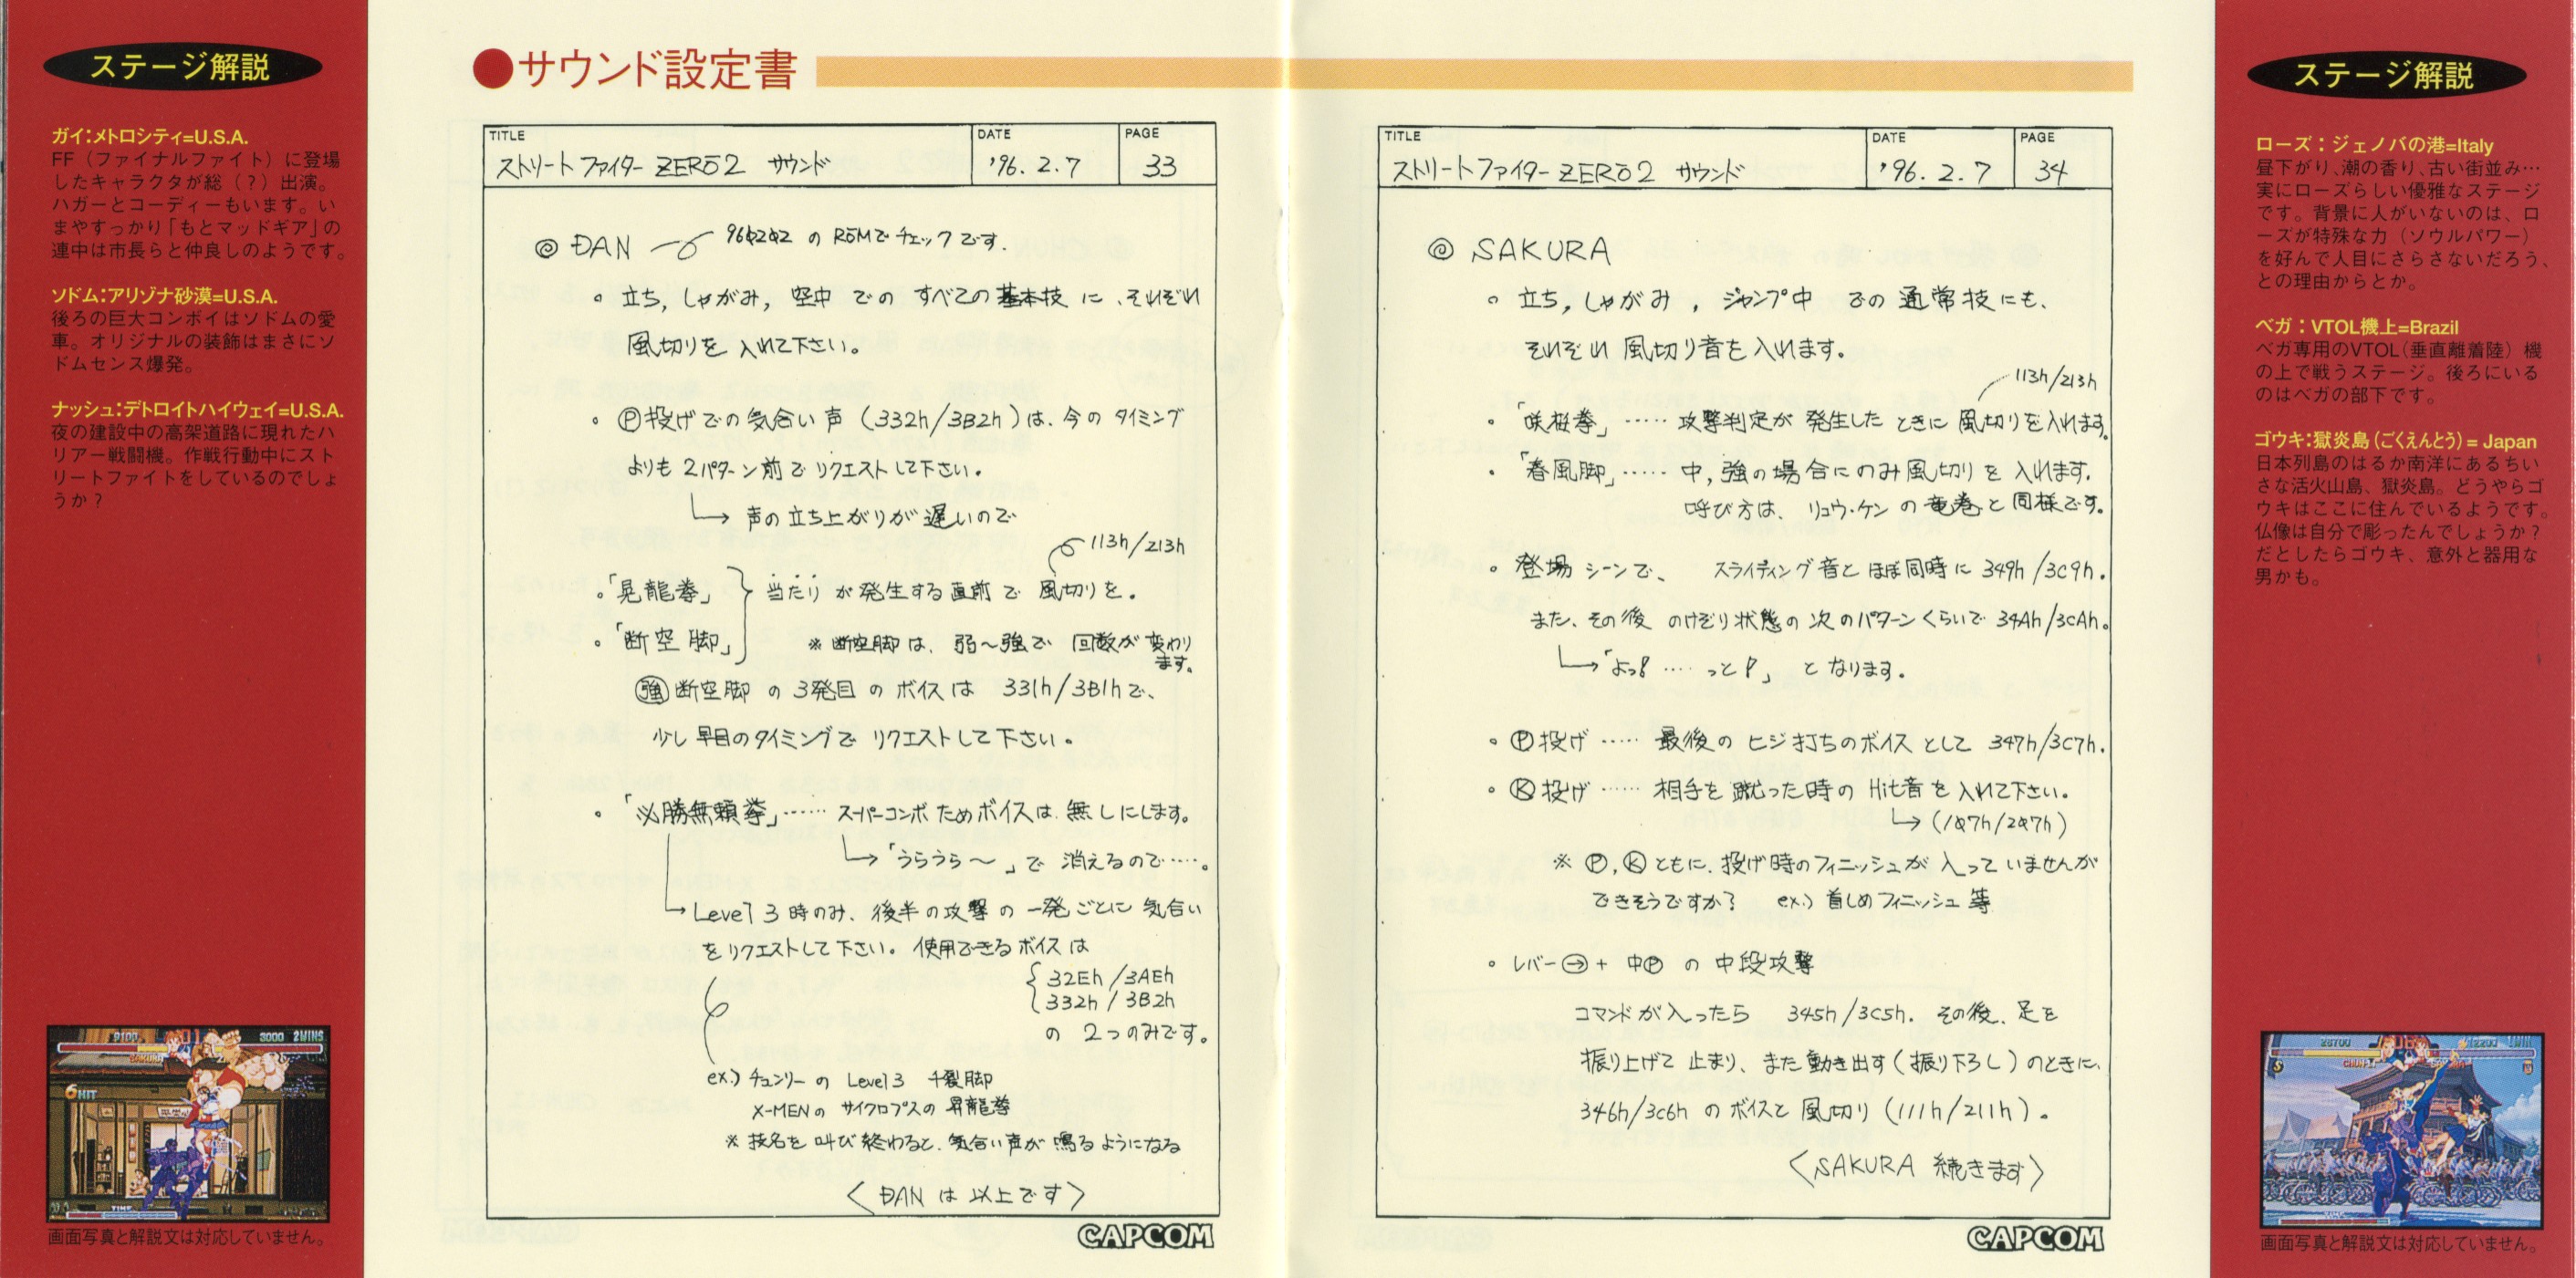 ステージ解説
ガイ:メトロシティ=U.S.A.
FF（ファイナルファイト）に登場
したキャラクタが総（？）出演。
ハガーとコーディーもいます。い
まやすっかり「もとマッドギア」の
連中は市長らと仲良しのようです。
ソドム:アリゾナ砂漠=U.S.A.
後ろの巨大コンボイはソドムの愛
車。オリジナルの装飾はまさにソ
ドムセンス爆発。
ナッシュ:デトロイトハイウェイ=U.S.A.
夜の建設中の高架道路に現れたハ
リアー戦闘機。作戦行動中にスト
リートファイトをしているのでしょ
うか？
9100
3000 2WINS
SAKURA
6HIT
TIME
画面写真と解説文は対応していません。
●サウンド設定書
TITLE
DATE
PAGE
ストリートファイターZERO2 サウンド
'96.2.7
33
◎ DAN
960202 の ROMでチェックです.
。立ち, しゃがみ, 空中 での すべての 基本技 に、それぞれ
風切りを 入れて下さい。
。Ⓟ投げでの気合い声（332h/3B2h）は、今の タイミング
よりも 2パターン前で リクエストして下さい。
↳ 声の立ち上がりが 遅いので
113h/213h
。「晃龍拳」
当たり が発生する直前で 風切りを。
。「断空脚」
※ 断空脚は、弱〜強で 回数が 変わり
ます。
㊀強 断空脚 の 3発目 の ボイスは 331h/3B1hで、
少し 早目のタイミングで リクエストして下さい。
。「必勝無頼拳」…… スーパーコンボ ためボイスは 無しにします。
↳「うらうら〜 」で 消えるので……。
↳ Level 3 時のみ、後半の攻撃の 一発ごとに 気合い
をリクエストして下さい。使用できるボイスは
32Eh/3AEh
332h/3B2h
の 2つのみです。
ex.) チュンリーの Level3 千裂脚
X-MENの サイクロプスの 昇龍拳
※ 技名を 叫び終わると、気合い声が 鳴るようになる
〈 DAN は 以上です 〉
CAPCOM
TITLE
DATE
PAGE
ストリートファイターZERO2 サウンド
'96.2.7
34
◎ SAKURA
。立ち, しゃがみ , ジャンプ中 での 通常技にも、
それぞれ 風切り音を入れます。
113h/213h
。「咲桜拳」…… 攻撃判定が 発生した ときに 風切りを入れます。
。「春風脚」…… 中, 強の場合にのみ風切りを 入れます.
呼び方は、 リュウ・ケン の 竜巻と同様です。
。登場 シーンで、 スライディング音と ほぼ同時に 349h/3C9h.
また、その後 のけぞり状態の 次のパターンくらいで 34Ah/3CAh。
↳「よっ! …… っと!」 と なります。
。Ⓟ投げ …… 最後の ヒジ打ちのボイスとして 347h/3C7h.
。Ⓚ投げ …… 相手を 蹴った時の Hit音を入れて下さい。
↳ (107h/207h)
※ Ⓟ,Ⓚともに、投げ時のフィニッシュが 入って いませんが
できそうですか？ ex.) 首しめフィニッシュ 等
。レバー⊖→ + 中Ⓟ の 中段攻撃
コマンドが入ったら 345h/3C5h. その後、足を
振り上げて 止まり、また動き出す(振り下ろし)のときに、
346h/3C6h のボイスと 風切り (111h/211h)。
〈SAKURA 続きます〉
CAPCOM
ステージ解説
ローズ：ジェノバの港=Italy
昼下がり､潮の香り､古い街並み…
実にローズらしい優雅なステージ
です。背景に人がいないのは、ロ
ーズが特殊な力（ソウルパワー）
を好んで人目にさらさないだろう、
との理由からとか。
ベガ：VTOL機上=Brazil
ベガ専用のVTOL（垂直離着陸）機
の上で戦うステージ。後ろにいる
のはベガの部下です。
ゴウキ:獄炎島（ごくえんとう）= Japan
日本列島のはるか南洋にあるちい
さな活火山島、獄炎島。どうやらゴ
ウキはここに住んでいるようです。
仏像は自分で彫ったんでしょうか？
だとしたらゴウキ、意外と器用な
男かも。
画面写真と解説文は対応していません。